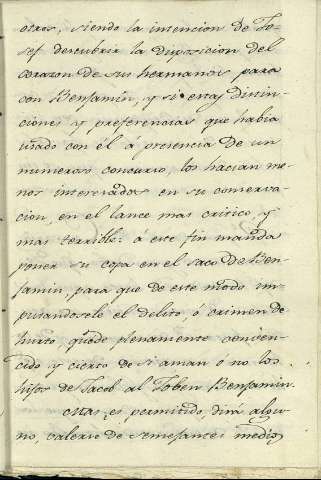 otros, siendo la intencion de Jo-
sef descubrir la disposicion del
corazon de sus hermanos para
con Benjamin, y si estas distin-
ciones y preferencias que habia
usado con él a presencia de un
numeroso concurso, los hacian me-
nos interesados en su conserva-
cion, en el lance mas critico, y
mas terrible: á este fin manda
poner su copa en el saco de Ben-
jamin, para que de este modo im-
putandosele el delito, ó crimen de
hurto, quede plenamente conven-
cido y cierto de si aman ó no los
hijos de Jacob al Joben Benjamin.
Mas, es permitido, dirá algu-
no, valerse de semejantes medios